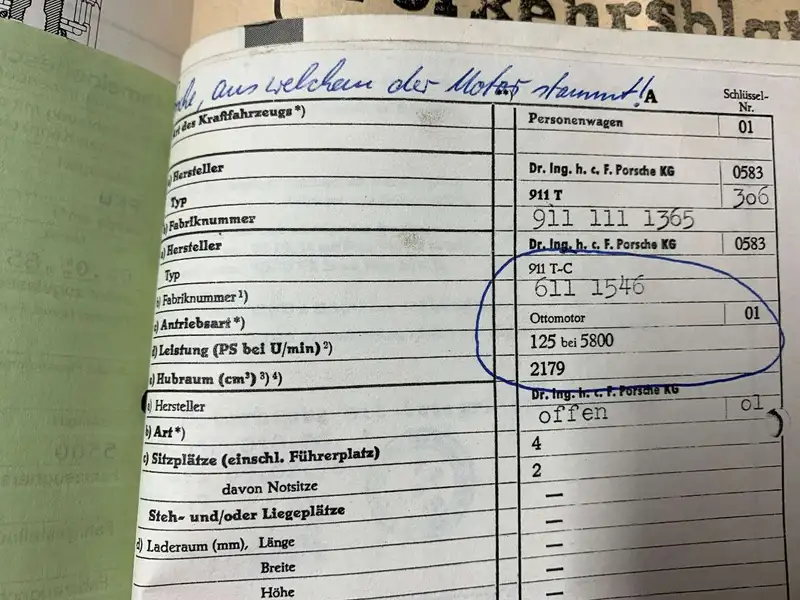 aus welchem der Motor stammt! A
Schlüssel-
Nr.
des Kraftfahrzeugs*) Personenwagen 01
Hersteller Dr. Ing. h. c. F. Porsche KG 0583
Typ 911 T 306
Fabriknummer 911 111 1365
a) Hersteller Dr. Ing. h. c. F. Porsche KG 0583
Typ 911 T-C
b) Fabriknummer¹) 611 1546
c) Antriebsart*) Ottomotor 01
d) Leistung (PS bei U/min)²) 125 bei 5800
e) Hubraum (cm³)³)⁴) 2179
a) Hersteller Dr. Ing. h. c. F. Porsche KG
b) Art*) offen 01
c) Sitzplätze (einschl. Führerplatz) 4
davon Notsitze 2
Steh- und/oder Liegeplätze —
d) Laderaum (mm), Länge —
Breite —
Höhe —